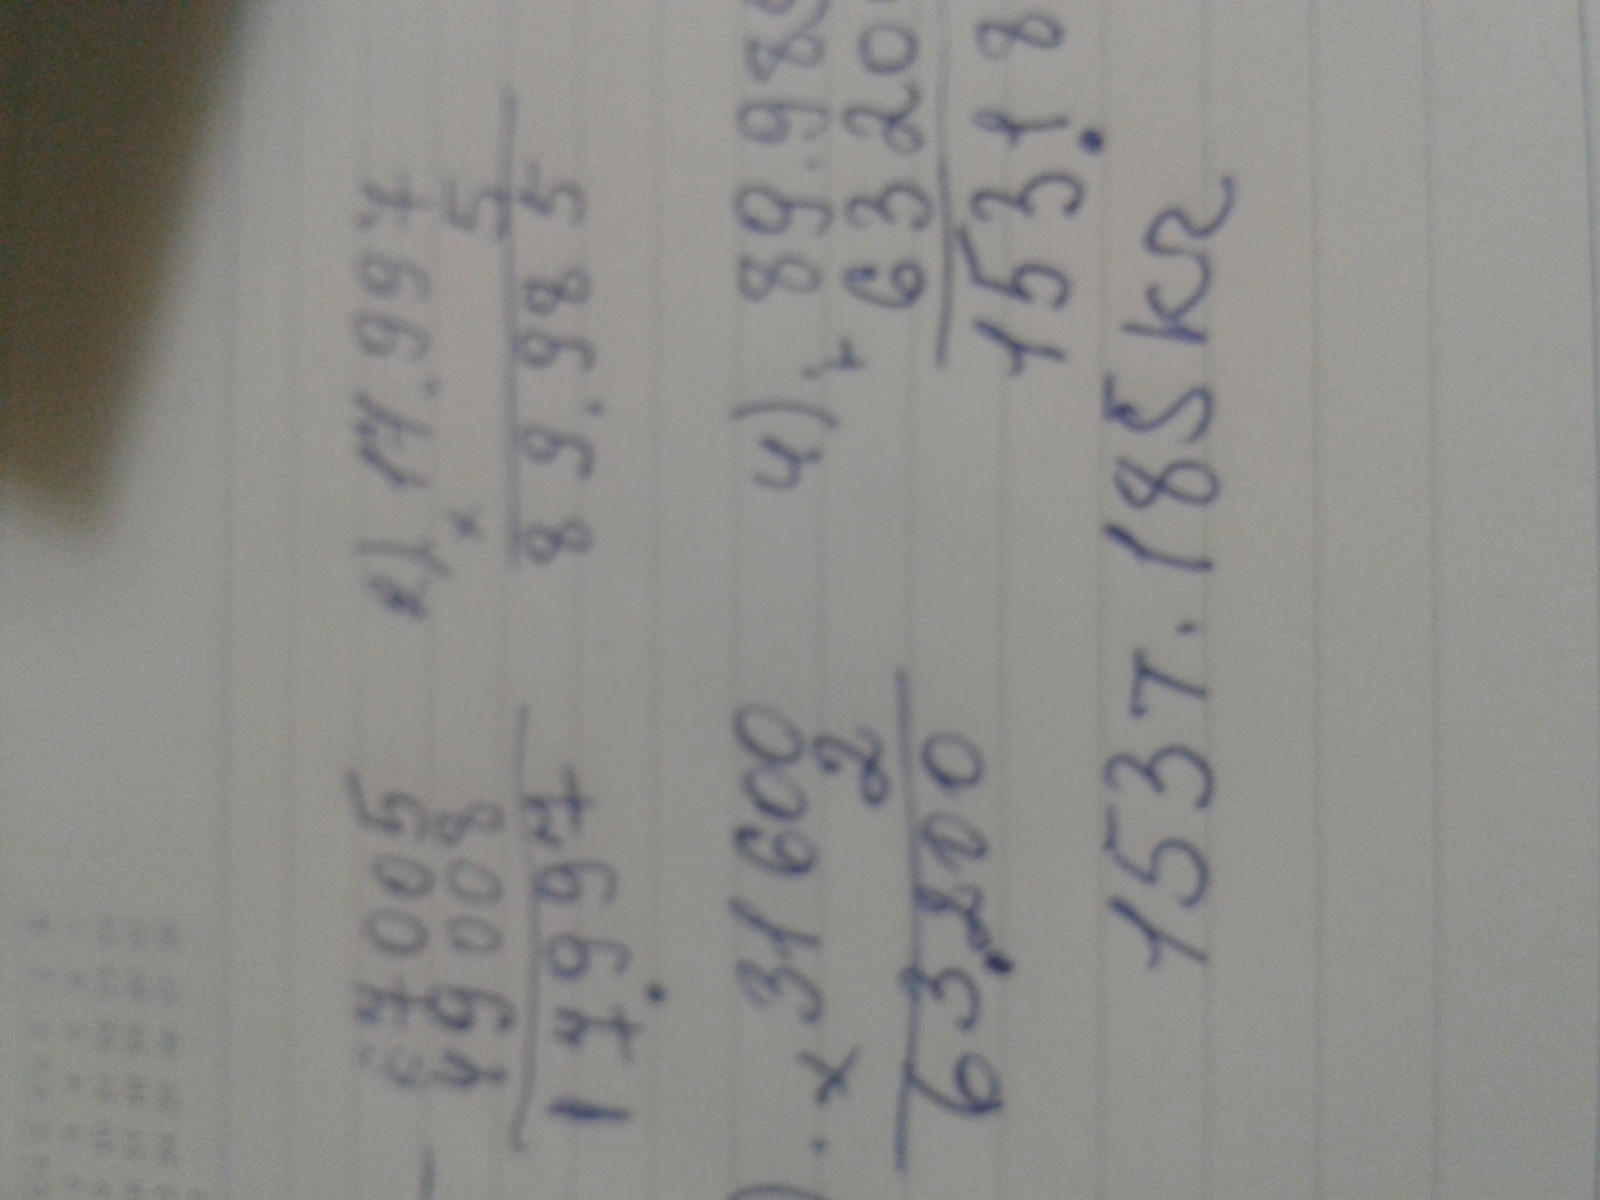 37005
19008
17.997
2) 17.997
× 5
89.985
) . × 31600
2
63.200
4) 89.98
+ 6320
153.18
153т.185кг